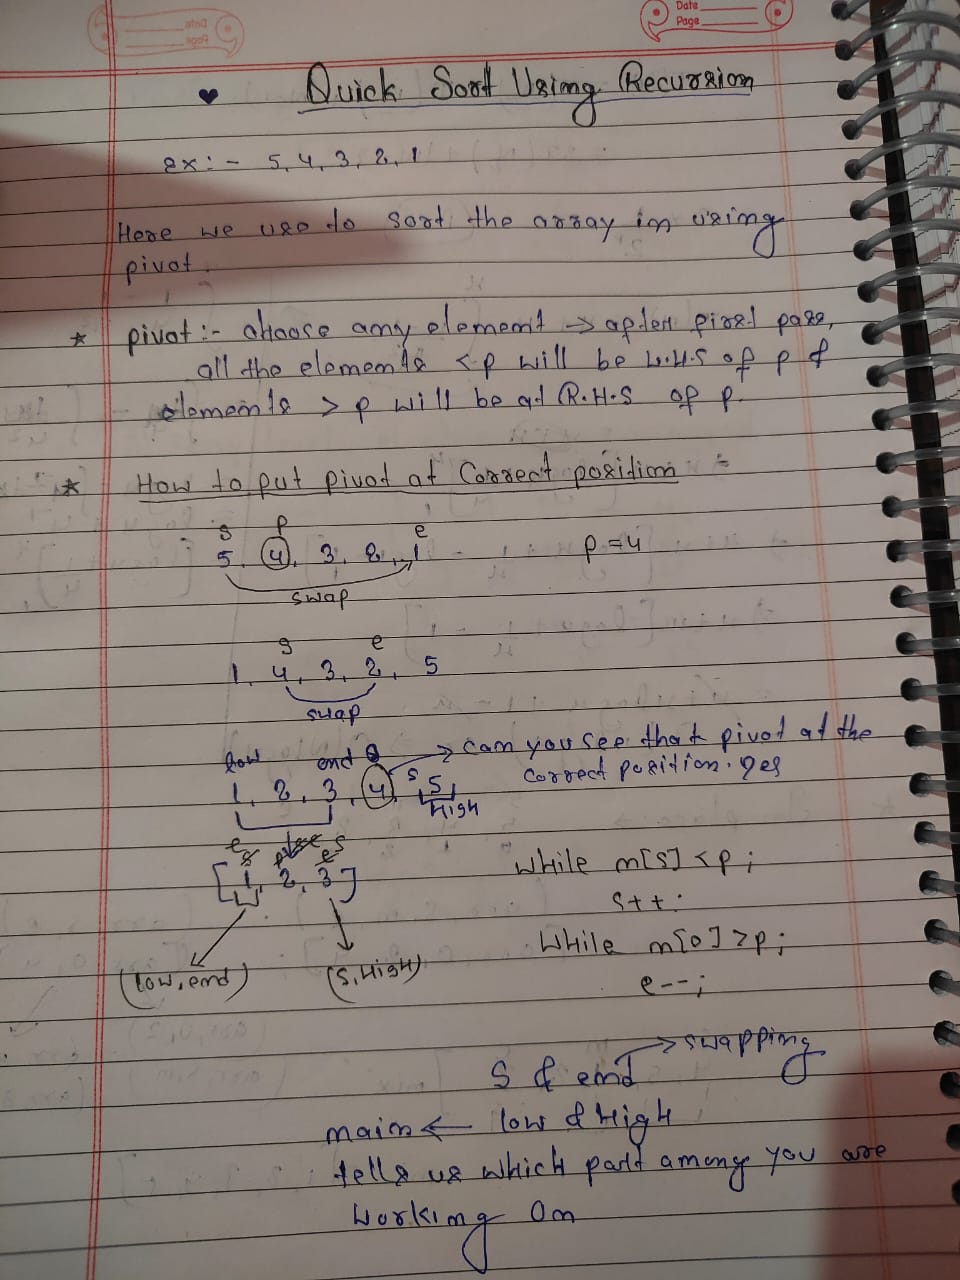 Date
Page
Quick Sort Using Recursion
ex:- 5, 4, 3, 2, 1
Here we use to sort the array in using
pivot
* pivot:- choose any element → after first pass,
all the elements < p will be L.H.S of p &
elements > p will be at R.H.S of p.
* How to put pivot at Correct position
s p e
5, 4, 3, 2, 1 p = 4
swap
s e
1, 4, 3, 2, 5
swap
low end → can you see that pivot at the
1, 2, 3, 4, s 5, correct position. yes
High
e s
s p e
[1, 2, 3] while m[s] < p;
s++;
while m[e] > p;
(low, end) (s, High) e--;
→ swapping
s & end
main ← low & High
tells us which part among you are
working on